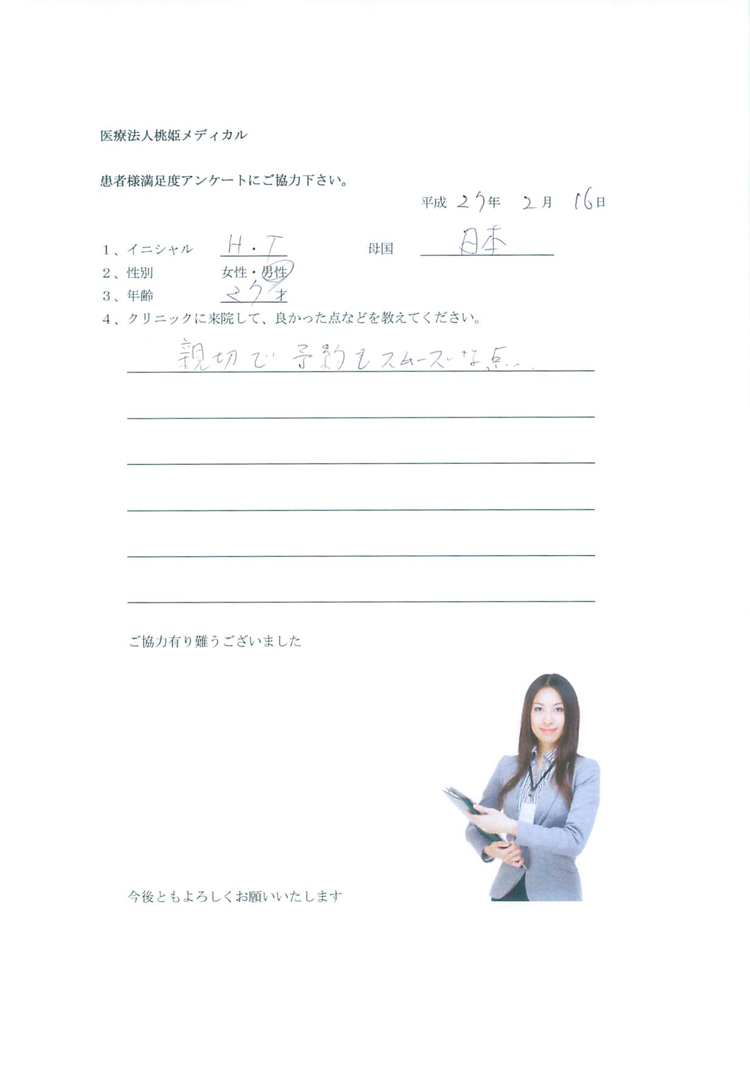 医療法人桃姫メディカル
患者様満足度アンケートにご協力下さい。
平成 27年 2月 16日
1、イニシャル H・T 母国 日本
2、性別 女性・男性
3、年齢 27才
4、クリニックに来院して、良かった点などを教えてください。
親切で予約もスムーズな点…
ご協力有り難うございました
今後ともよろしくお願いいたします